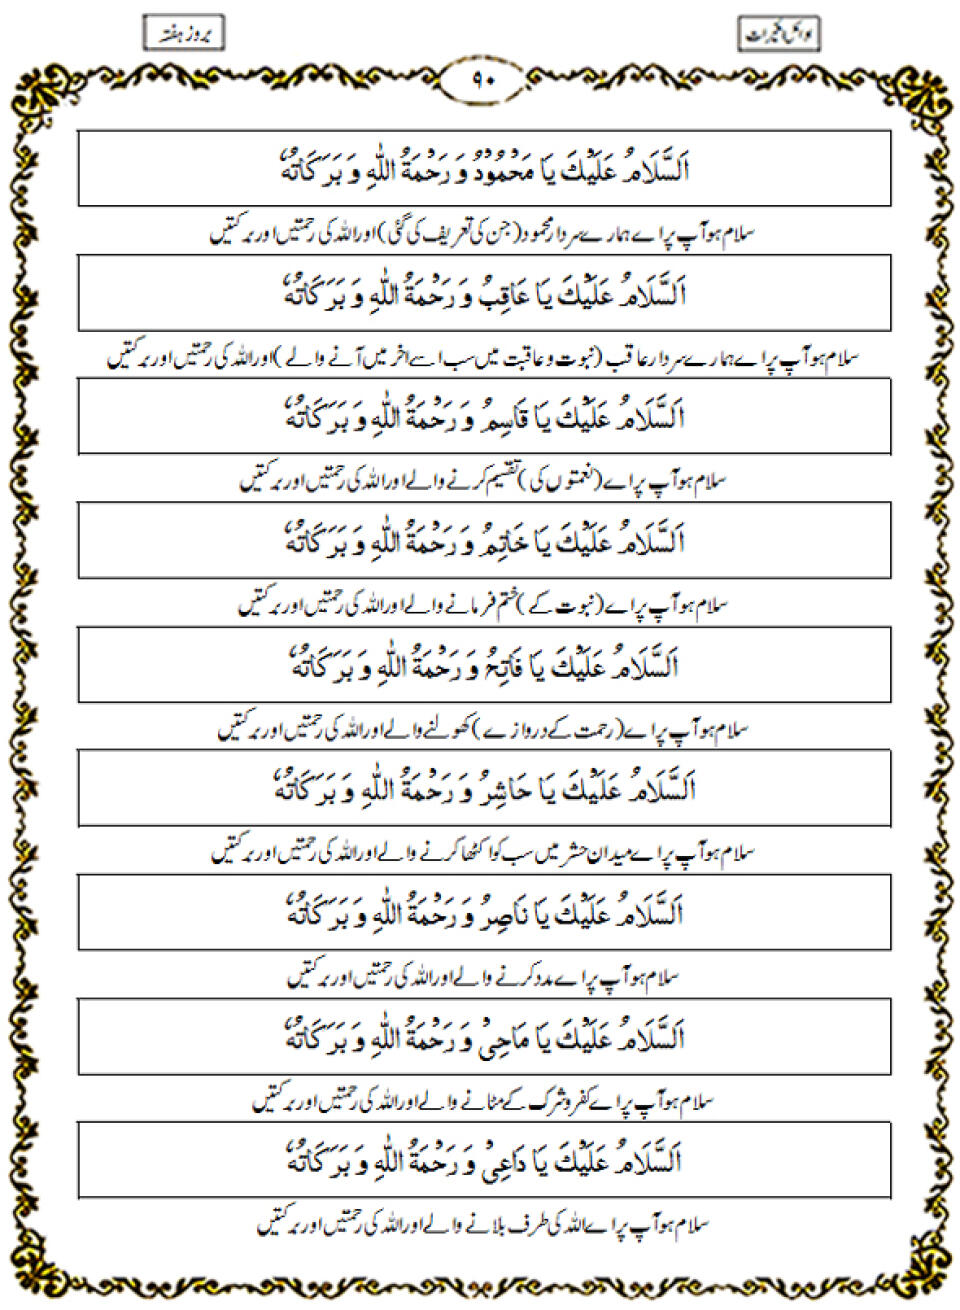 اوائل الخیرات
بروز ہفتہ
۹۰
اَلسَّلَامُ عَلَیْكَ یَا مَحْمُوْدُ وَ رَحْمَةُ اللّٰهِ وَ بَرَكَاتُهٗ
سلام ہو آپ پر اے ہمارے سردار محمود (جن کی تعریف کی گئی) اور اللہ کی رحمتیں اور برکتیں
اَلسَّلَامُ عَلَیْكَ یَا عَاقِبُ وَ رَحْمَةُ اللّٰهِ وَ بَرَكَاتُهٗ
سلام ہو آپ پر اے ہمارے سردار عاقب (نبوت و عاقبت میں سب اسے اخر میں آنے والے) اور اللہ کی رحمتیں اور برکتیں
اَلسَّلَامُ عَلَیْكَ یَا قَاسِمُ وَ رَحْمَةُ اللّٰهِ وَ بَرَكَاتُهٗ
سلام ہو آپ پر اے (نعمتوں کی) تقسیم کرنے والے اور اللہ کی رحمتیں اور برکتیں
اَلسَّلَامُ عَلَیْكَ یَا خَاتِمُ وَ رَحْمَةُ اللّٰهِ وَ بَرَكَاتُهٗ
سلام ہو آپ پر اے (نبوت کے) ختم فرمانے والے اور اللہ کی رحمتیں اور برکتیں
اَلسَّلَامُ عَلَیْكَ یَا فَاتِحُ وَ رَحْمَةُ اللّٰهِ وَ بَرَكَاتُهٗ
سلام ہو آپ پر اے (رحمت کے دروازے) کھولنے والے اور اللہ کی رحمتیں اور برکتیں
اَلسَّلَامُ عَلَیْكَ یَا حَاشِرُ وَ رَحْمَةُ اللّٰهِ وَ بَرَكَاتُهٗ
سلام ہو آپ پر اے میدان حشر میں سب کو اکٹھا کرنے والے اور اللہ کی رحمتیں اور برکتیں
اَلسَّلَامُ عَلَیْكَ یَا نَاصِرُ وَ رَحْمَةُ اللّٰهِ وَ بَرَكَاتُهٗ
سلام ہو آپ پر اے مدد کرنے والے اور اللہ کی رحمتیں اور برکتیں
اَلسَّلَامُ عَلَیْكَ یَا مَاحِیْ وَ رَحْمَةُ اللّٰهِ وَ بَرَكَاتُهٗ
سلام ہو آپ پر اے کفر و شرک کے مٹانے والے اور اللہ کی رحمتیں اور برکتیں
اَلسَّلَامُ عَلَیْكَ یَا دَاعِیْ وَ رَحْمَةُ اللّٰهِ وَ بَرَكَاتُهٗ
سلام ہو آپ پر اے اللہ کی طرف بلانے والے اور اللہ کی رحمتیں اور برکتیں